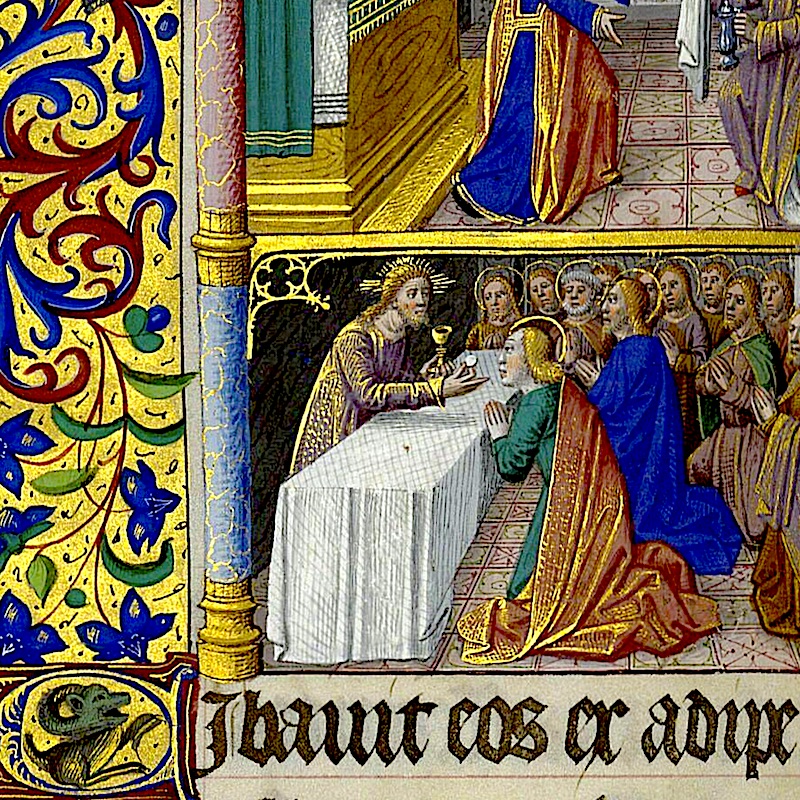 Ibauit eos ex adipe